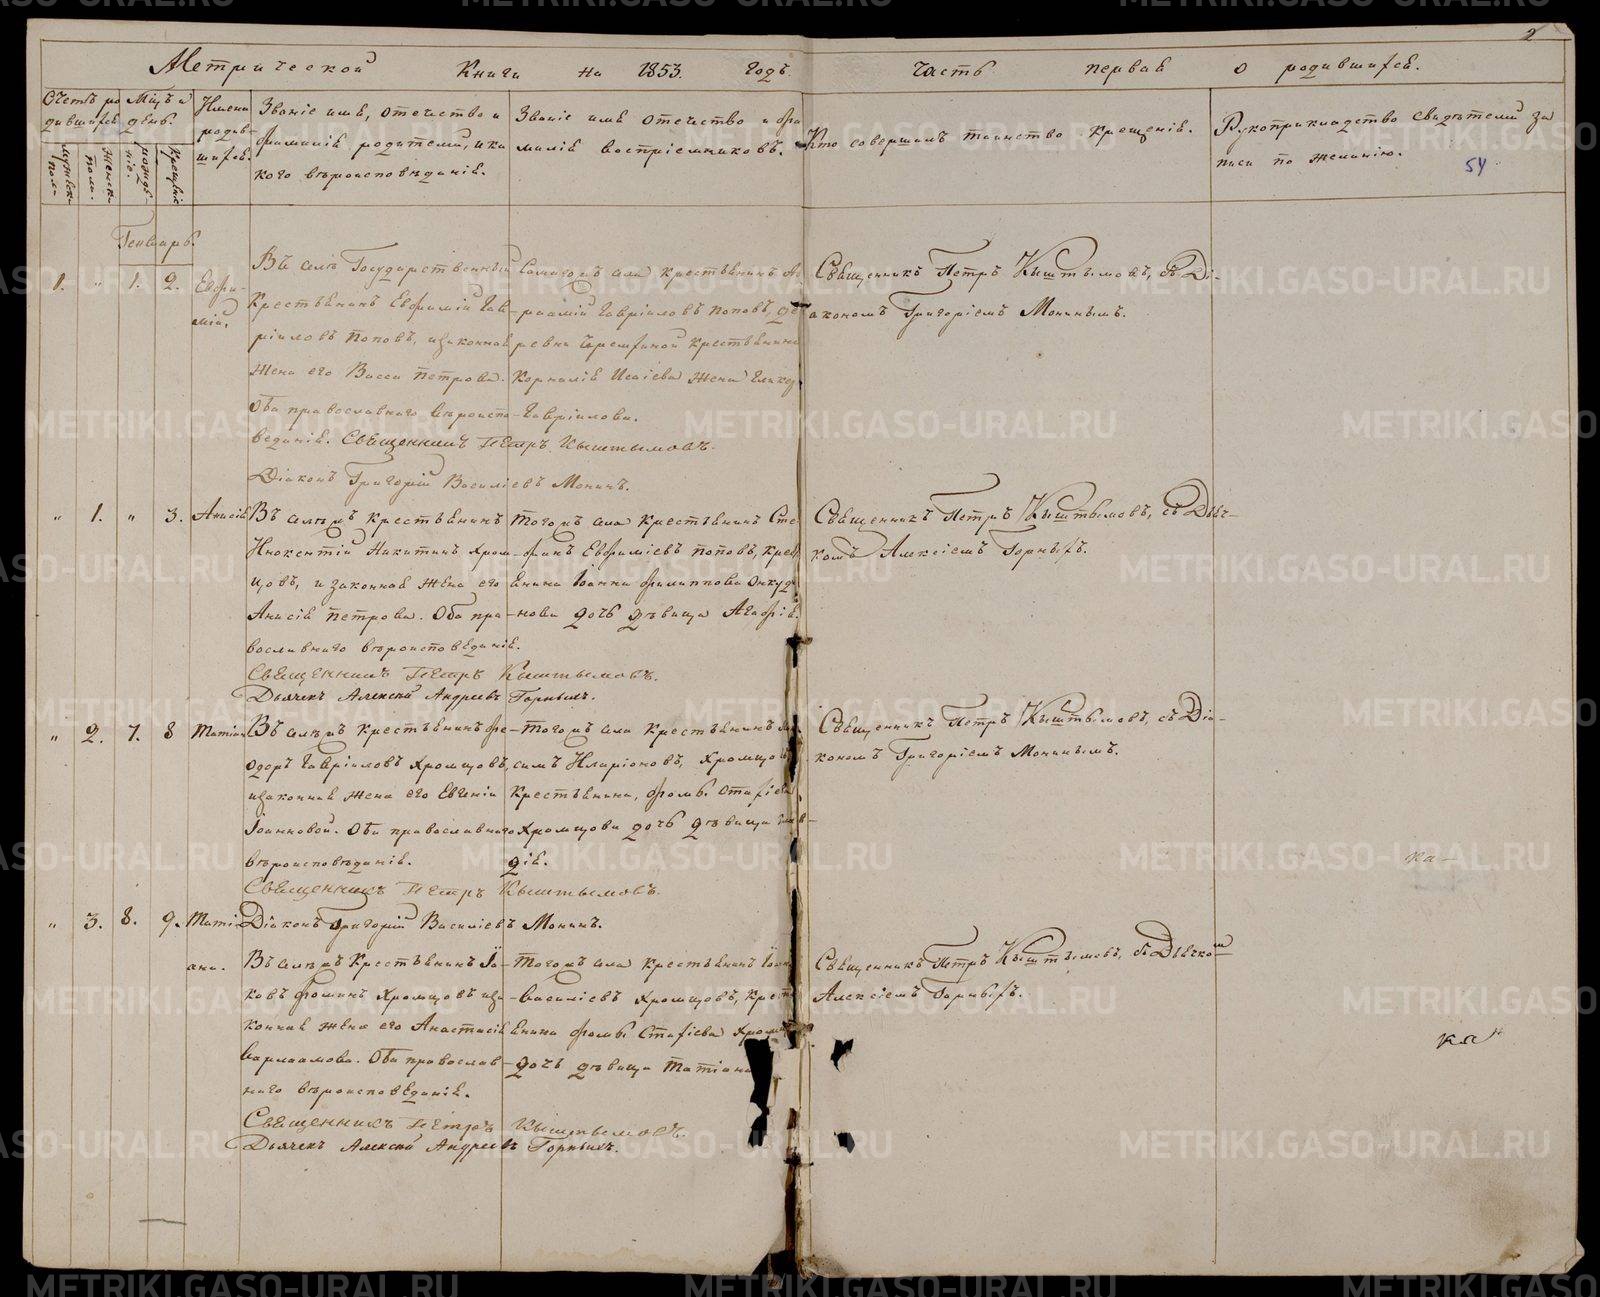 2
Метрической Книги на 1853. годъ.
часть первая о родившихся.
Счетъ ро
дившихся
Мцъ и
день.
Имена
родив-
шихся.
Званіе имя, отечество и
фамилія родителей, и ка
кого вѣроисповѣданія.
Званіе имя отечество и фа
милія воспріемниковъ.
Кто совершалъ таинство крещенія.
Рукоприкладство свидѣтелей за
писи по желанію.
54
мужеск.
пола
женск.
пола.
рожде-
нія.
крещенія
Генварь.
1. " 1. 2. Евфи-
мій.
Въ селѣ Государственный
Крестьянинъ Евфимій Гав-
ріиловъ Поповъ, и законная
жена его Васса Петрова.
Оба православнаго вѣроиспо-
веданія. Священникъ Петръ Кыштымовъ.
Діаконъ Григорій Василіевъ Монинъ.
села крестьянинъ
Гавріиловъ Поповъ, де
ревни крестьянина
Корнилія Исаіева жена
Гавріилова.
Священникъ Петръ Кыштымовъ, съ Ді-
акономъ Григоріемъ Мониномъ.
" 1. " 3. Анисія
Въ селѣ крестьянинъ
Инокентій Никитинъ Хром-
цовъ, и законная жена его
Анисія Петрова. Оба пра-
вославнаго вѣроисповѣданія.
Священникъ Петръ Кыштымовъ.
Дьячекъ Алексѣй Андреевъ Горныхъ.
Тогожъ села крестьянинъ Сте
фанъ Евфиміевъ Поповъ, крест
янина Іоанна Филиппова
нова дочь дѣвица Агафія.
Священникъ Петръ Кыштымовъ, съ Дьяч-
комъ Алексіемъ Горныхъ.
" 2. 7. 8 Татіана
Въ селѣ крестьянинъ Фе-
одоръ Гавріиловъ Хромцовъ,
и законная жена его Евгенія
Іоанновой. Оба православнаго
вѣроисповѣданія.
Священникъ Петръ Кыштымовъ.
Діаконъ Григорій Василіевъ Монинъ.
Тогожъ села крестьянинъ
симъ Иларіоновъ, Хромцовъ
Крестьянина, Фомы
Хромцова дочь дѣвица
дія.
Священникъ Петръ Кыштымовъ, съ Діа-
кономъ Григоріемъ Мониномъ.
ка-
" 3. 8. 9. Таті-
ана.
Въ селѣ Крестьянинъ Іа-
ковъ Фоминъ Хромцовъ и за
конная жена его Анастасія
Варлаамова. Оба православ-
наго вѣроисповѣданія.
Священникъ Петръ Кыштымовъ.
Дьячекъ Алексѣй Андреевъ Горныхъ.
Тогожъ села крестьянинъ
Василіевъ Хромцовъ, крест
янина Фомы Хромц
дочь дѣвица Татіана
Священникъ Петръ Кыштымовъ, съ Дьячком
Алексіемъ Горныхъ.